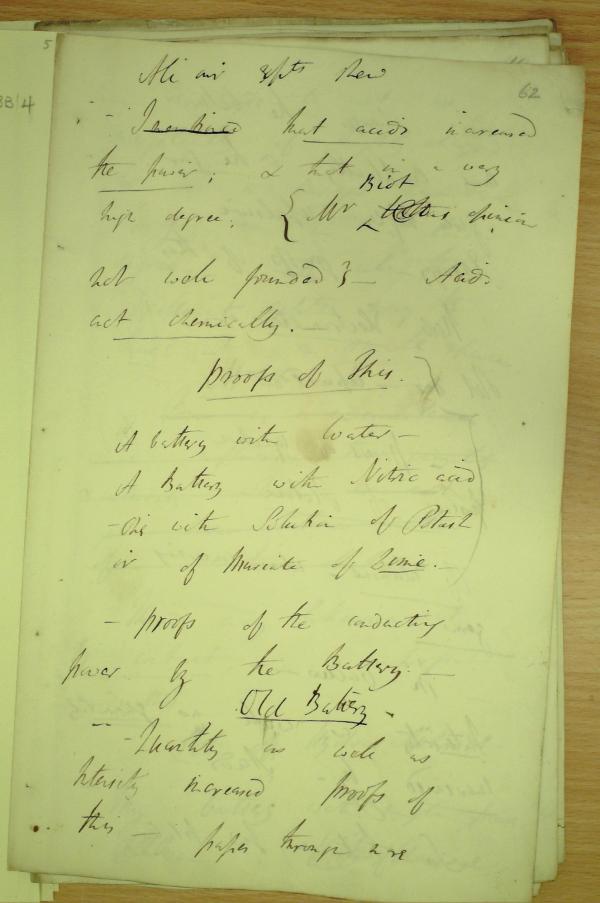 5
62
- I mentioned that acids increased
the power; & that in a very
Biot
high degree. { Mr opinion
not well founded } - Acids
act chemically.
Proofs of This.
A battery with Water -
A Battery with Nitric acid
- One with Solution of Potash
or of Muriate of Lime. -
- proofs of the conducting
power by the Battery. -
Old Battery -
- Quantity as well as
Intensity increased proofs of
this - through